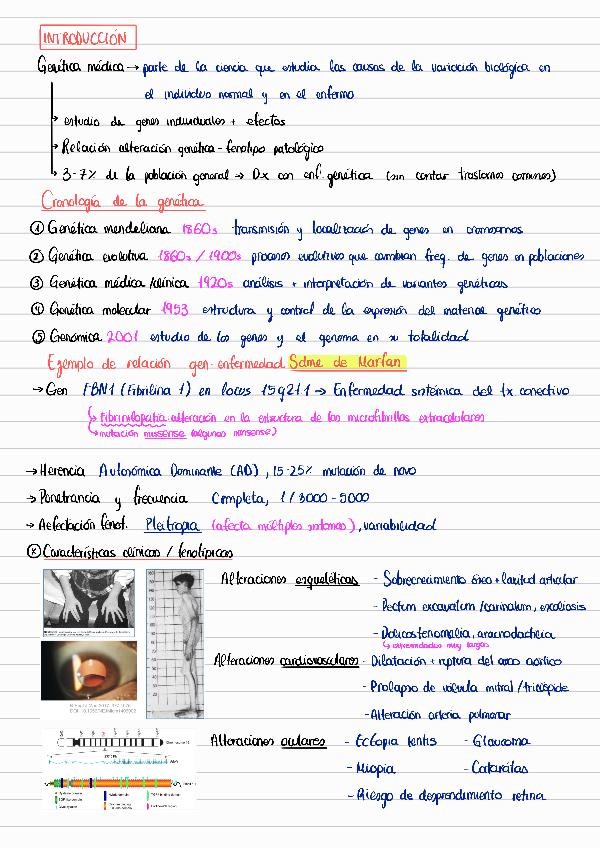 INTRODUCCIÓN
Genética médica → parte de la ciencia que estudia las causas de la variación biológica en
el individuo normal y en el enfermo
→ estudio de genes individuales + efectos
→ Relación alteración genética - fenotipo patológico
→ 3-7% de la población general → Dx con enf. genética (sin contar trastornos comunes)
Cronología de la genética
① Genética mendeliana 1860s transmisión y localización de genes en cromosomas
② Genética evolutiva 1860s / 1900s procesos evolutivos que cambian freq. de genes en poblaciones
③ Genética médica/clínica 1920s análisis + interpretación de variantes genéticas
④ Genética molecular 1953 estructura y control de la expresión del material genético
⑤ Genómica 2001 estudio de los genes y el genoma en su totalidad
Ejemplo de relación gen-enfermedad Sdme de Marfan
→ Gen FBN1 (Fibrilina 1) en locus 15q21.1 → Enfermedad sistémica del tx conectivo
↳ Fibrinilopatía alteración en la estructura de las microfibrillas extracelulares
↳ mutación missense (algunas nonsense)
→ Herencia Autonómica Dominante (AD), 15-25% mutación de novo
→ Penetrancia y frecuencia Completa, 1/3000-5000
→ Aefectación fenot. Pleitropia (afecta múltiples sistemas), variabilidad
Características clínicas / fenotípicas
Alteraciones esqueléticas - Sobrecrecimiento óseo + laxitud articular
- Pectum excavatum/carinatum, escoliosis
- Dolicostenomelia, aracnodactilia
↳ extremidades muy largas
Alteraciones cardiovasculares - Dilatación + ruptura del arco aórtico
- Prolapso de válvula mitral/tricúspide
- Alteración arteria pulmonar
Alteraciones oculares - Ectopia lentis - Glaucoma
- Miopía - Cataratas
- Riesgo de desprendimiento retina